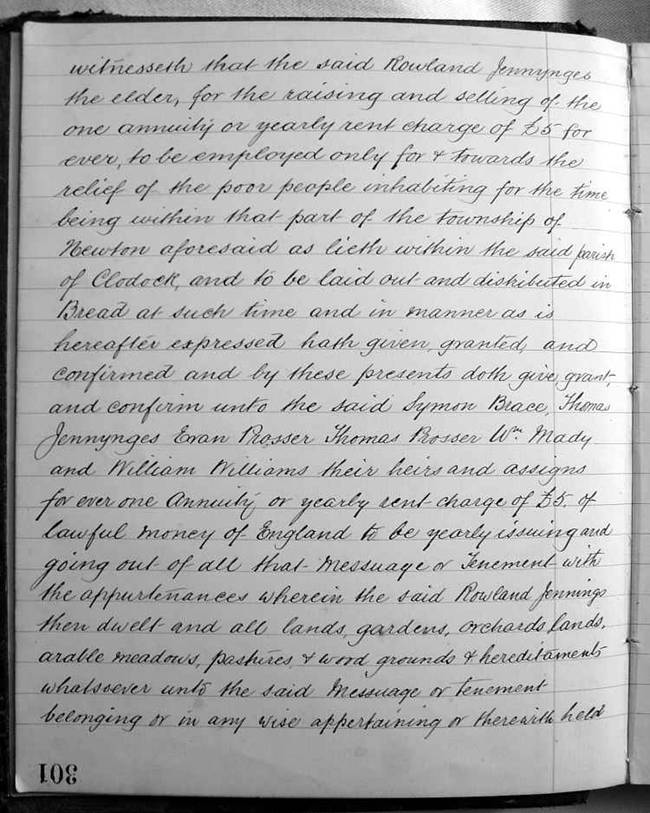 witnesseth that the said Rowland Jennynges
the elder, for the raising and selling of the
one annuity or yearly rent charge of £5 for
ever, to be employed only for & towards the
relief of the poor people inhabiting for the time
being within that part of the township of
Newton aforesaid as lieth within the said parish
of Clodock, and to be laid out and distributed in
Bread at such time and in manner as is
hereafter expressed hath given, granted, and
confirmed and by these presents doth give, grant,
and confirm unto the said Symon Brace, Thomas
Jennynges Evan Prosser Thomas Prosser Wm. Mady
and William Williams their heirs and assigns
for ever one Annuity or yearly rent-charge of £5. of
lawful money of England to be yearly issuing and
going out of all that Messuage or Tenement with
the appurtenances wherein the said Rowland Jennings
then dwelt and all lands, gardens, orchards, lands,
arable meadows, pastures, & wood grounds & hereditaments
whatsoever unto the said Messuage or tenement
belonging or in any wise appertaining or therewith held
301